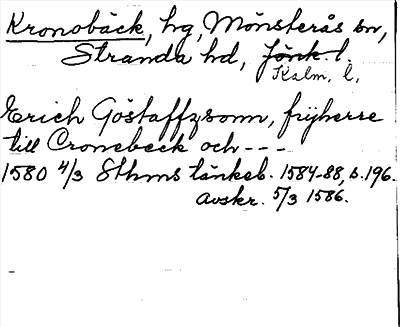 Kronobäck, hg, Mönsterås sn,
Stranda hd, Jönk. l.
Kalm. l.
Erich Göstaffzsonn, frijherre
till Cronebeck och ---
1580 4/3 Sthms tänkeb. 1584-88, s. 196.
Avskr. 5/3 1586.